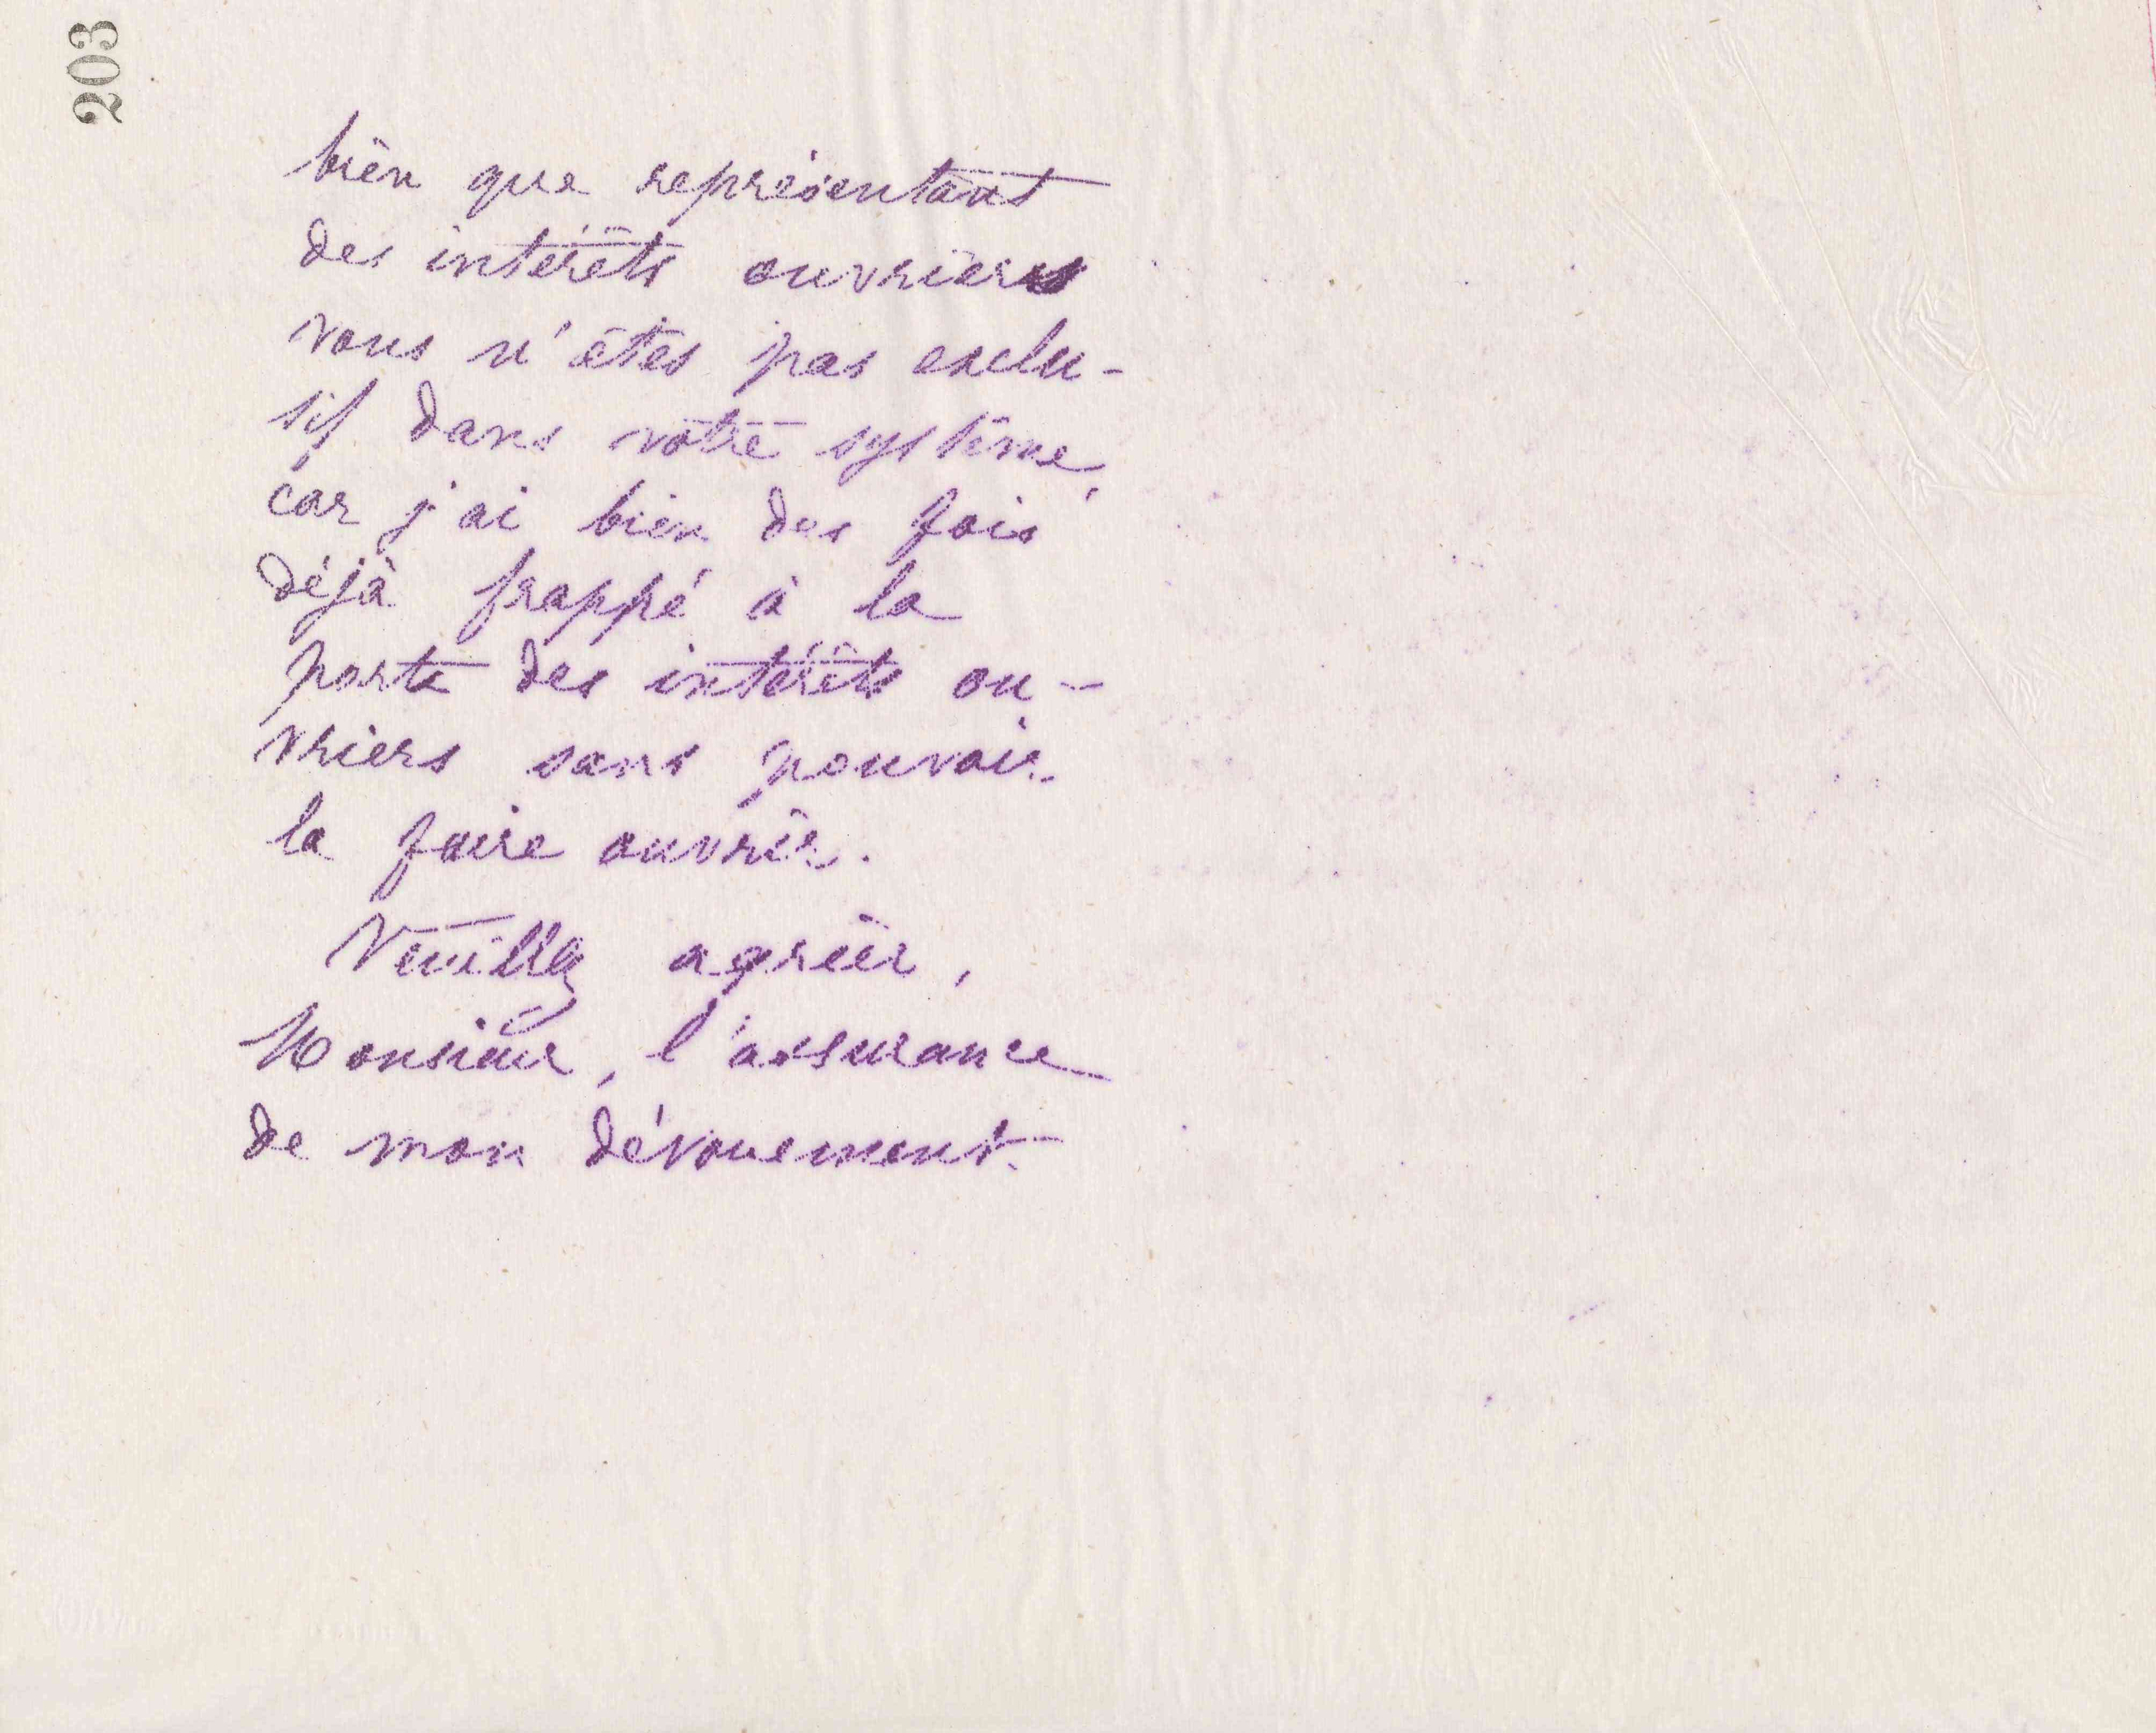 203
bien que représentant
des intérêts ouvriers
vous n'êtes pas exclu-
sif dans votre système,
car j'ai bien des fois
déjà frappé à la
porte des intérêts ou-
vriers sans pouvoir
la faire ouvrir.
Veuillez agréer,
Monsieur, l'assurance
de mon dévouement.